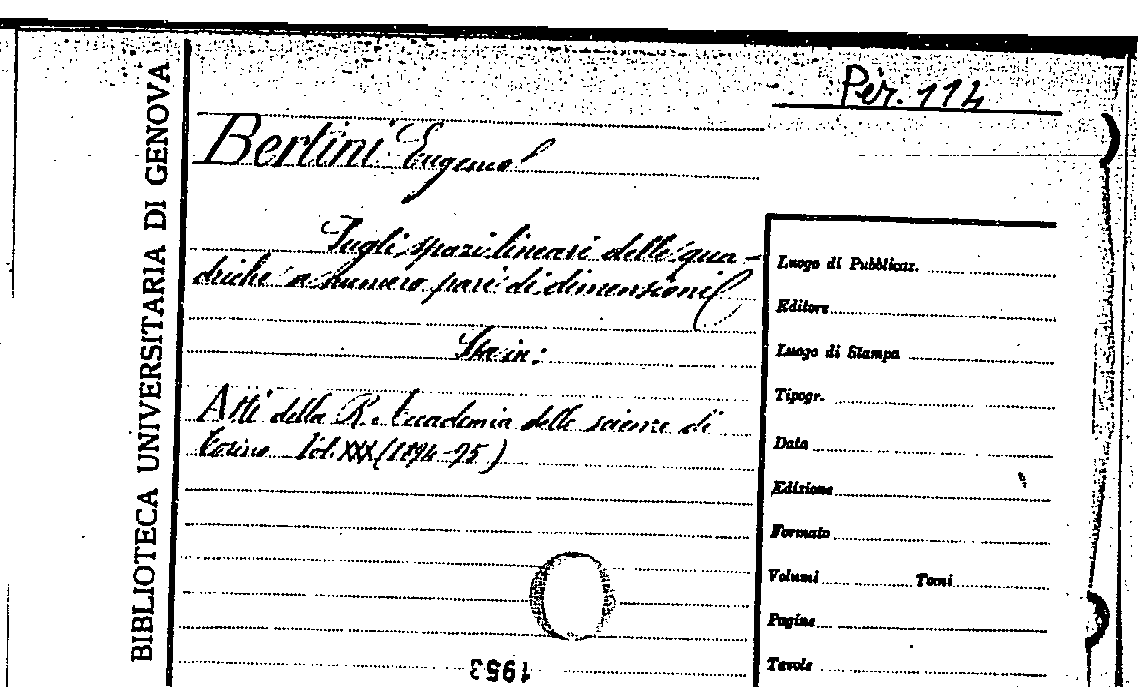 BIBLIOTECA UNIVERSITARIA DI GENOVA
Per. 114
Bertini Eugenio
Sugli spazi lineari delle qua-
driche a numero pari di dimensioni
Sta in:
Atti della R. Accademia delle scienze di
Torino Vol. XXX (1894-95)
1953
Luogo di Pubblicaz.
Editore
Luogo di Stampa
Tipogr.
Data
Edizione
Formato
Volumi Tomi
Pagine
Tavole